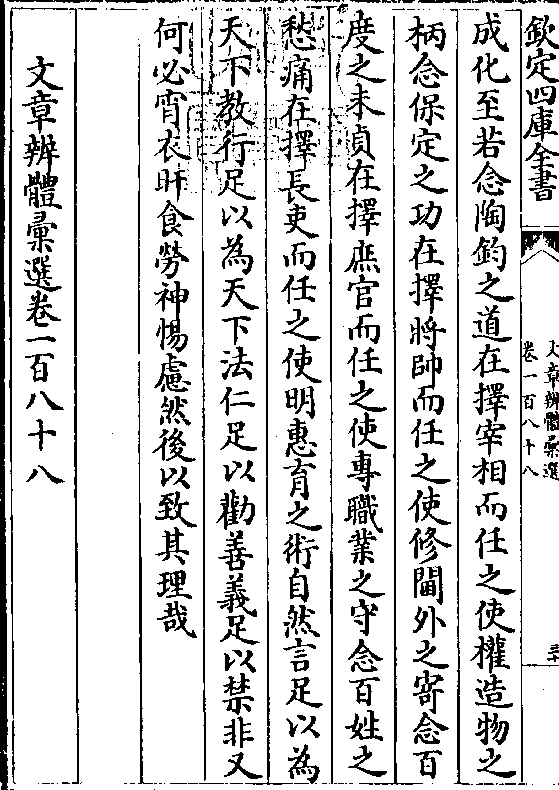 欽定四庫全書
文章辨體彙選
卷一百八十八
三十
成化至若念陶鈞之道在擇宰相而任之使權造物之
柄念保定之功在擇將帥而任之使修閫外之寄念百
度之未貞在擇庶官而任之使專職業之守念百姓之
愁痛在擇長吏而任之使明惠育之術自然言足以為
天下教行足以為天下法仁足以勸善義足以禁非又
何必宵衣旰食勞神惕慮然後以致其理哉
文章辨體彙選卷一百八十八